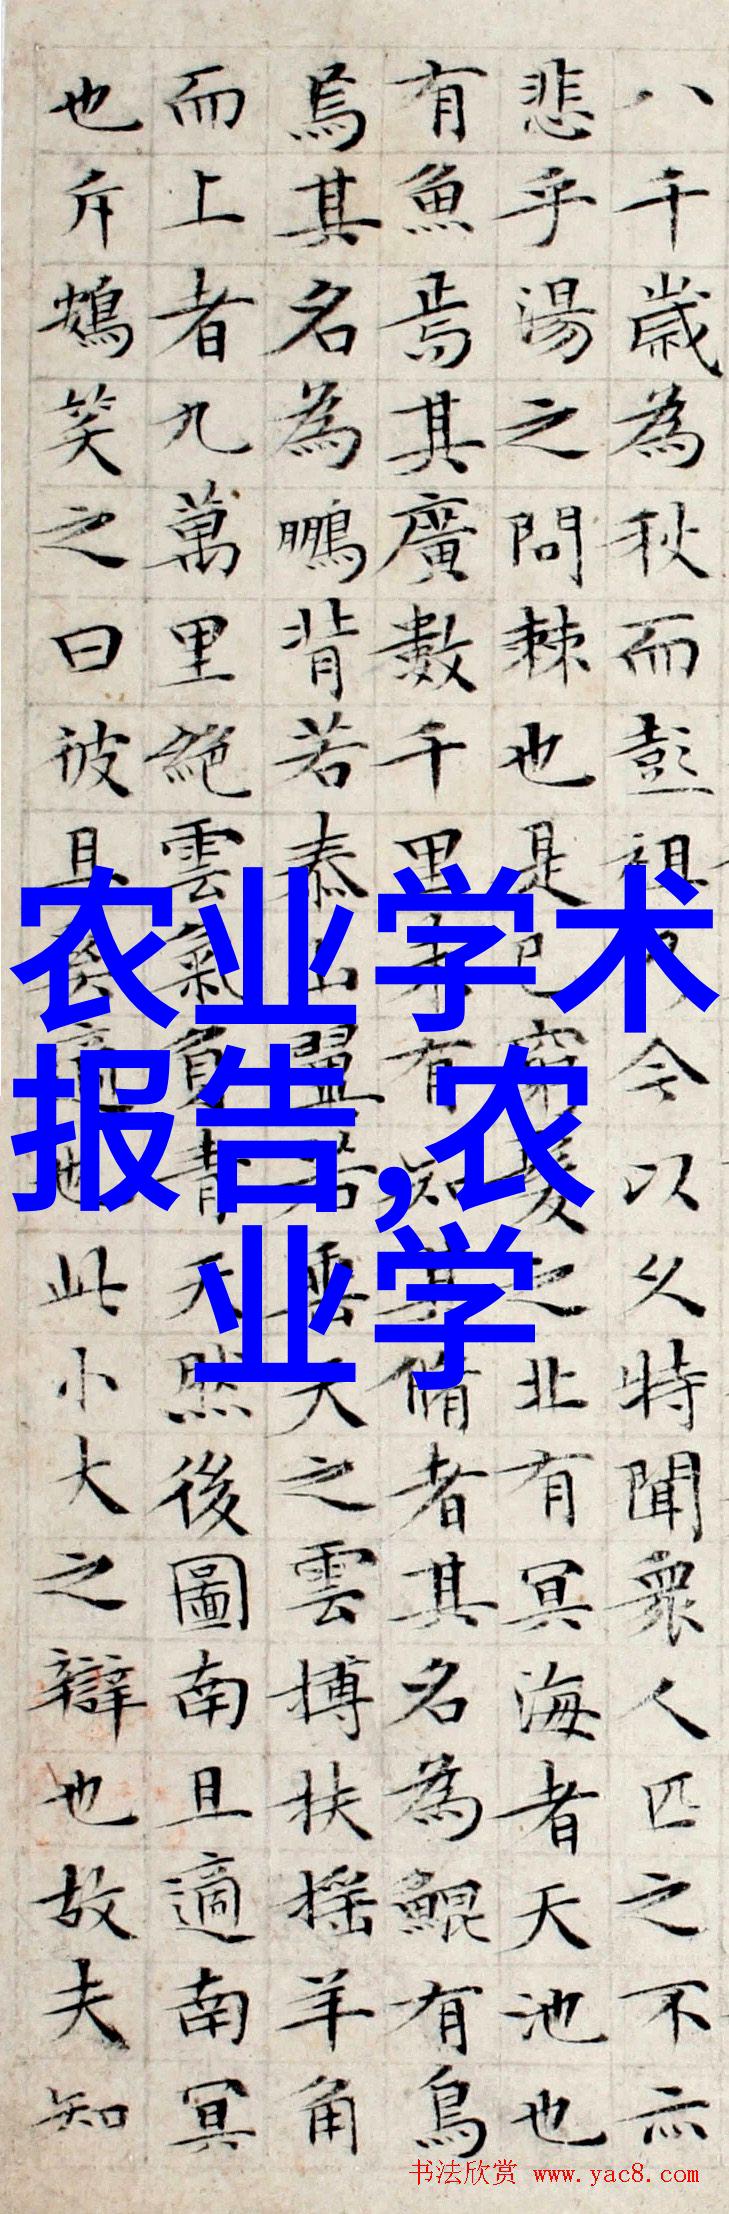 八千歲為秋而彭祖乃今以久特聞眾人匹之不亦
悲乎湯之問棘也是已窮髮之北有冥海者天池也
有魚焉其廣數千里未有知其脩者其名為鯤有鳥
焉其名為鵬背若泰山翼若垂天之雲搏扶搖羊角
而上者九萬里絕雲氣負青天然後圖南且適南冥
也斥鴳笑之曰彼且奚適也此小大之辯也故夫知
农业学术
报告,农
业学
书法欣赏 www.yac8.com